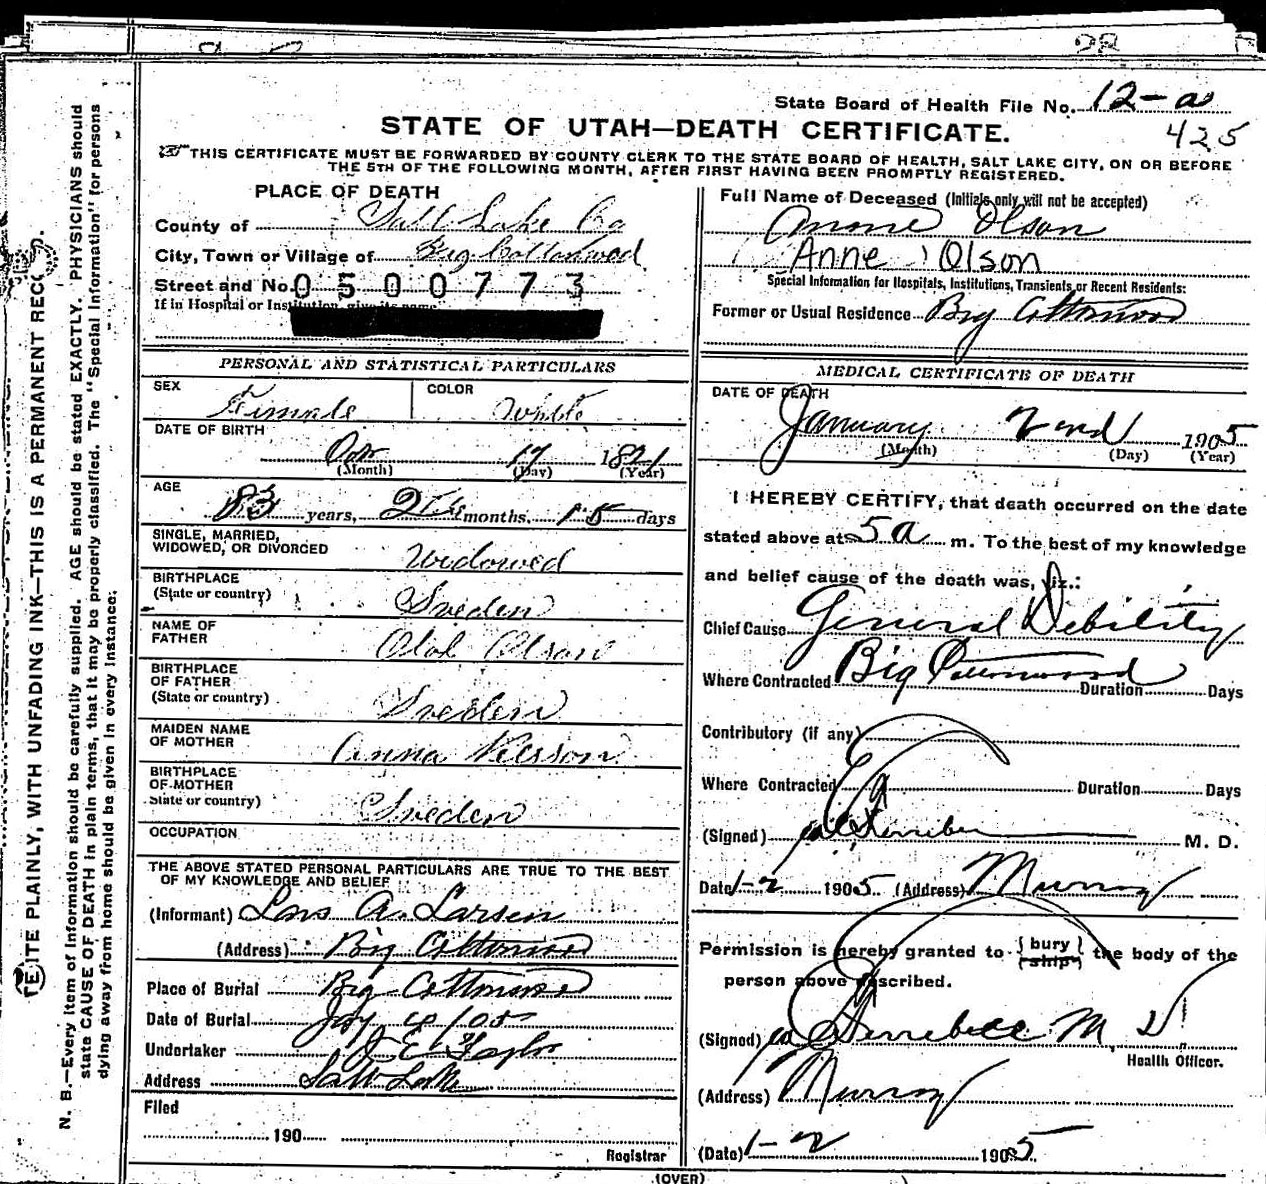 State Board of Health File No. 12-a
425
STATE OF UTAH—DEATH CERTIFICATE.
THIS CERTIFICATE MUST BE FORWARDED BY COUNTY CLERK TO THE STATE BOARD OF HEALTH, SALT LAKE CITY, ON OR BEFORE
THE 5TH OF THE FOLLOWING MONTH, AFTER FIRST HAVING BEEN PROMPTLY REGISTERED.
PLACE OF DEATH
County of Salt Lake Co
City, Town or Village of Big Cottonwood
Street and No. 0500773
If in Hospital or Institution, give its name
Full Name of Deceased (Initials only will not be accepted)
Annie Olson
Anne Olson
Special Information for Hospitals, Institutions, Transients or Recent Residents:
Former or Usual Residence Big Cottonwood
PERSONAL AND STATISTICAL PARTICULARS
SEX Female
COLOR White
DATE OF BIRTH
17 1821
(Month) (Day) (Year)
AGE
83 years, 2 months, 15 days
SINGLE, MARRIED,
WIDOWED, OR DIVORCED Widowed
BIRTHPLACE
(State or country) Sweden
NAME OF
FATHER Olof Olson
BIRTHPLACE
OF FATHER
(State or country) Sweden
MAIDEN NAME
OF MOTHER Anna
BIRTHPLACE
OF MOTHER
State or country) Sweden
OCCUPATION
THE ABOVE STATED PERSONAL PARTICULARS ARE TRUE TO THE BEST
OF MY KNOWLEDGE AND BELIEF
(Informant) Lars A. Larsen
(Address) Big Cottonwood
Place of Burial Big Cottonwood
Date of Burial
Undertaker J E Taylor
Address Salt Lake
Filed
190
Registrar
MEDICAL CERTIFICATE OF DEATH
DATE OF DEATH
January 2nd 1905
(Month) (Day) (Year)
I HEREBY CERTIFY, that death occurred on the date
stated above at 5 a m. To the best of my knowledge
and belief cause of the death was, viz.:
Chief Cause General Debility
Where Contracted Big Cottonwood Duration Days
Contributory (if any)
Where Contracted Duration Days
(Signed) M. D.
Date 1-2 1905 (Address) Murray
Permission is hereby granted to {bury
ship} the body of the
person above described.
(Signed) M. D.
Health Officer.
(Address) Murray
(Date) 1-2 1905
(OVER)
WRITE PLAINLY, WITH UNFADING INK—THIS IS A PERMANENT RECORD.
N. B.—Every item of information should be carefully supplied. AGE should be stated EXACTLY. PHYSICIANS should
state CAUSE OF DEATH in plain terms, that it may be properly classified. The "Special Information" for persons
dying away from home should be given in every instance.